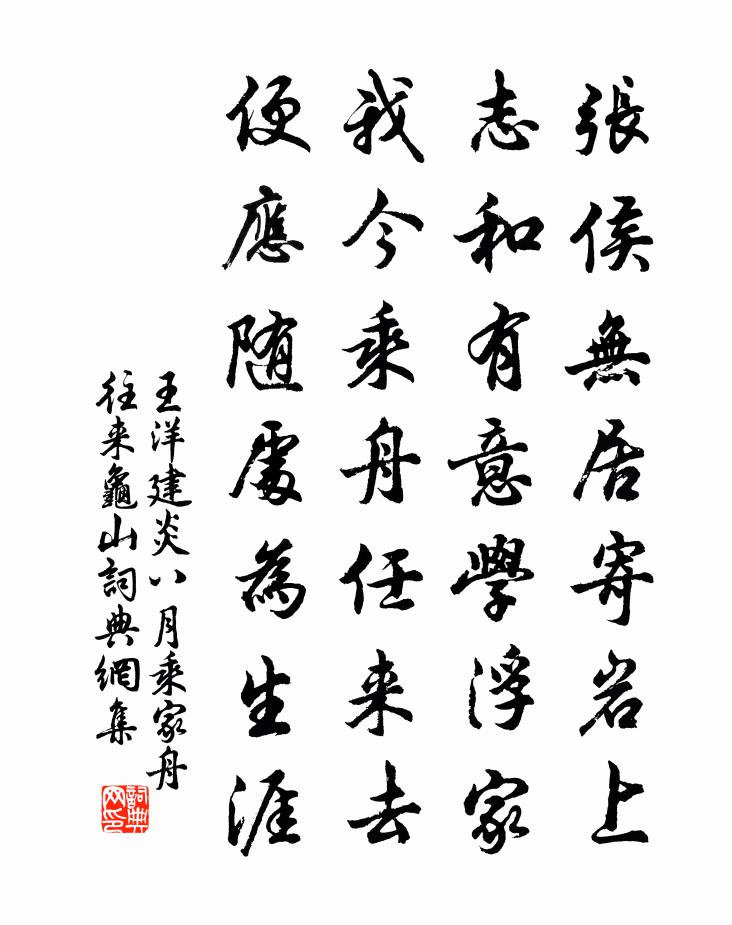 張侯無居寄岩上
志和有意學浮家
我今乘舟任来去
便應随處為生涯
王洋建炎八月乘家舟
往来龜山詞典網集
詞典
网印